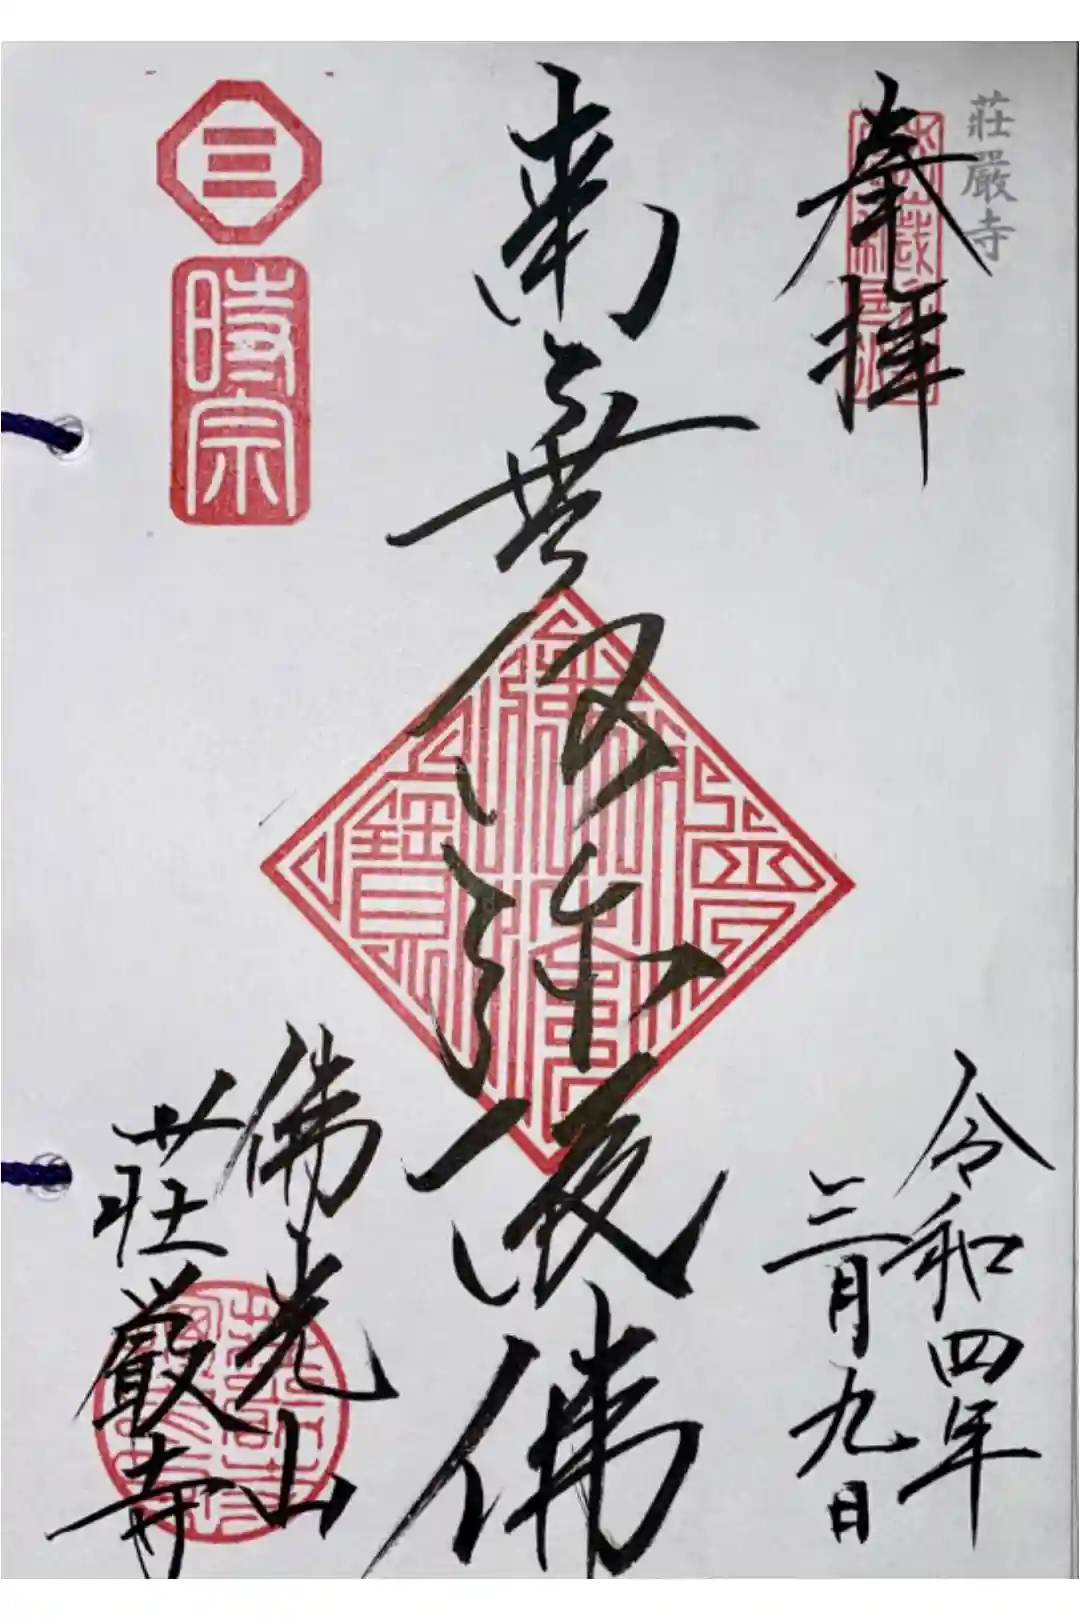 莊嚴寺
奉拝
令和四年
三月九日
南無阿弥陀佛
佛光山
莊嚴寺
時宗